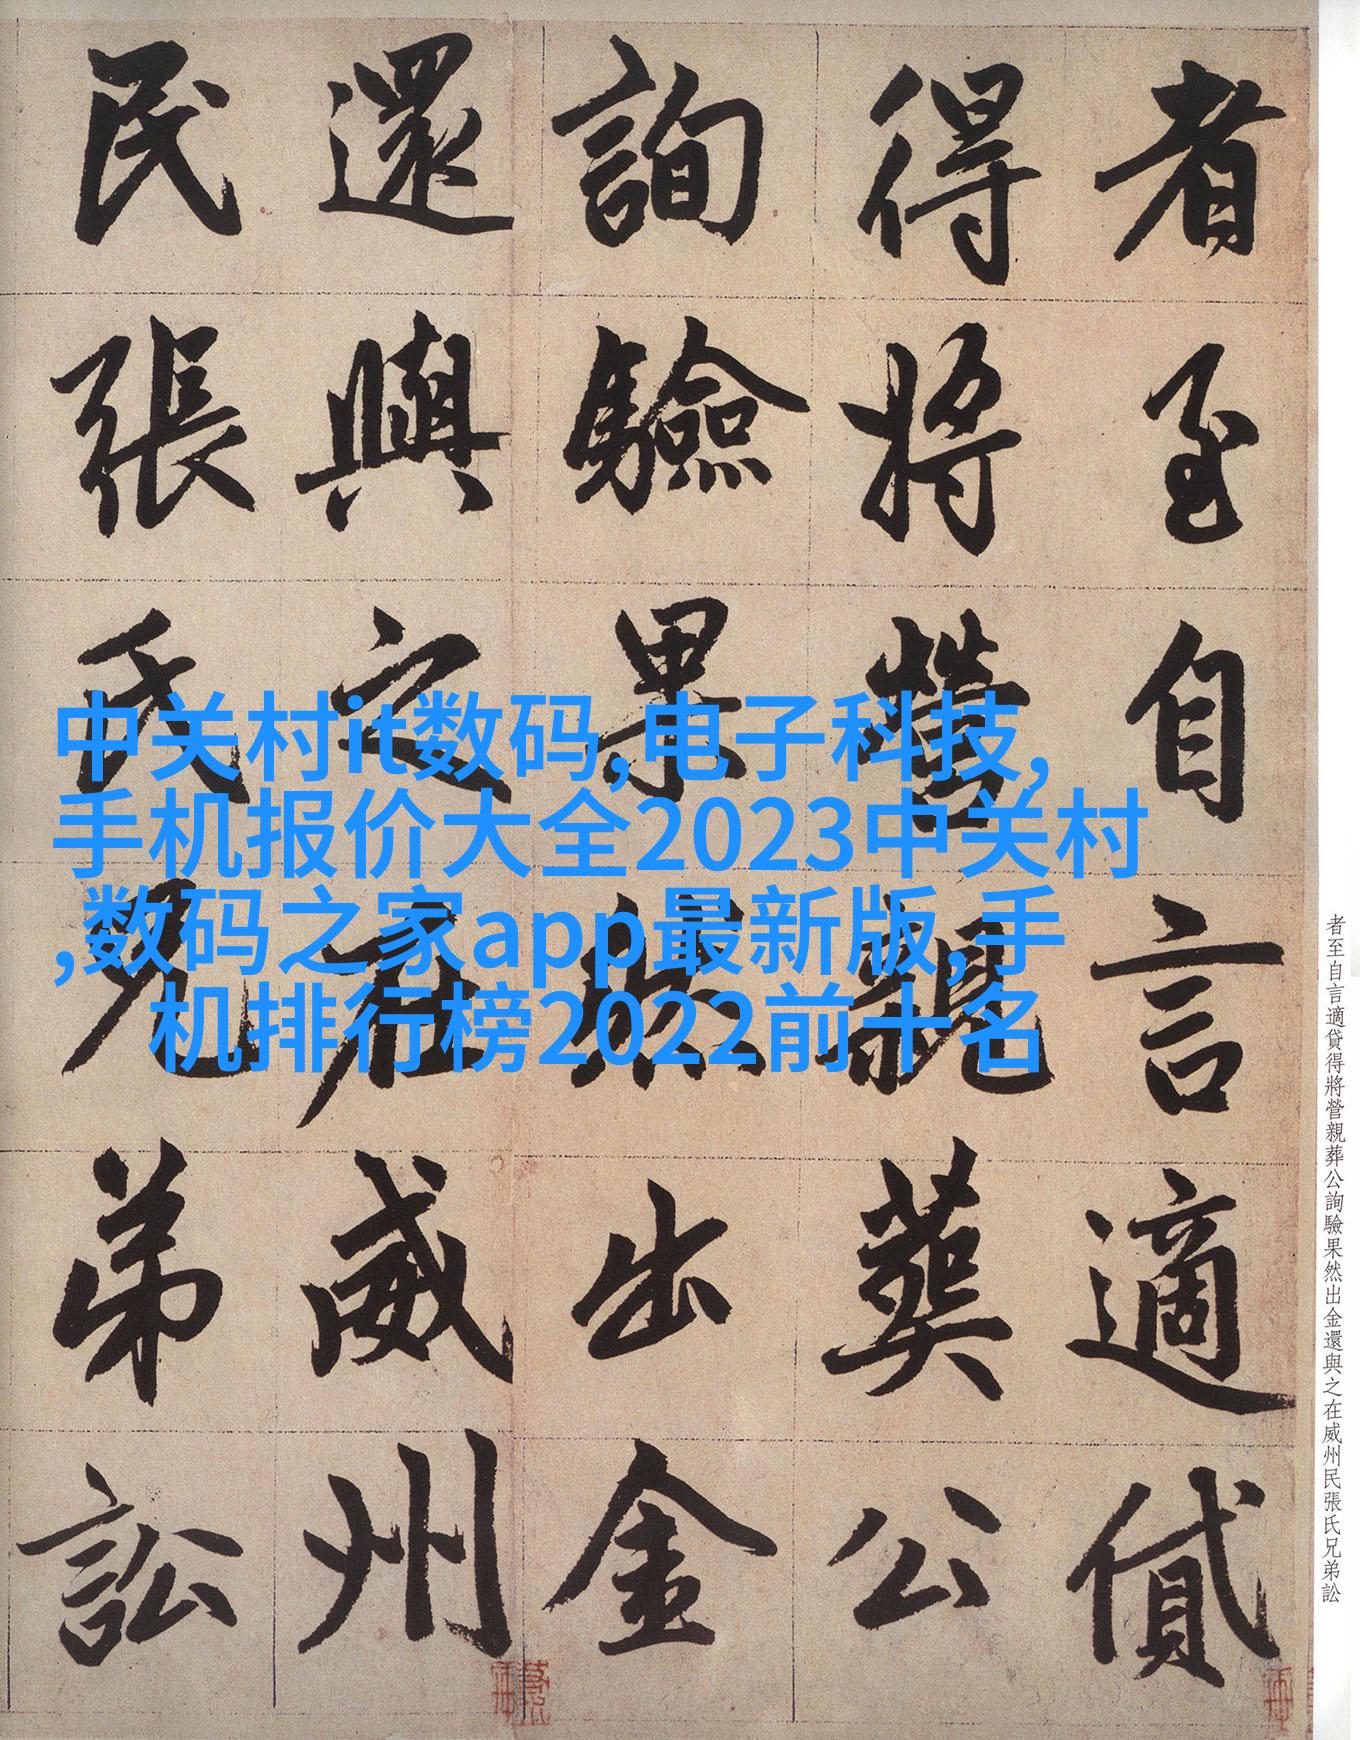 者至自言適貸
得將營親葬公
詢驗果然出金
還與之在威州
民張氏兄弟訟
中关村it数码,电子科技,
手机报价大全2023中关村
,数码之家app最新版,手
机排行榜2022前十名
者至自言適貸得將營親葬公詢驗果然出金還與之在威州民張氏兄弟訟